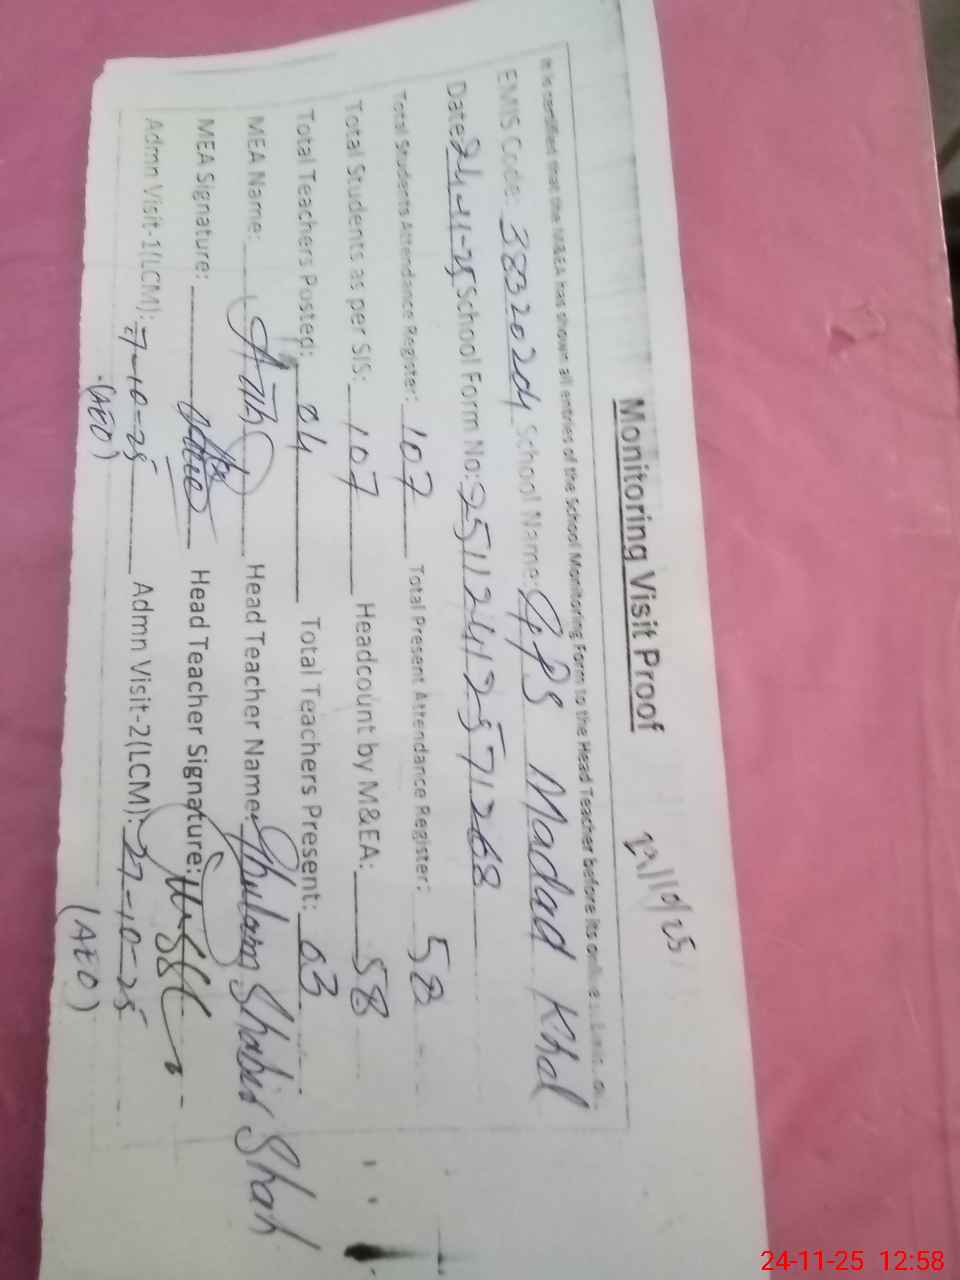 Monitoring Visit Proof
It is certified that the M&EA has shown all entries of the School Monitoring Form to the Head Teacher before its online
EMIS Code: 38320204 School Name: GPS Madad Khel
Date: 24-11-25 School Form No: 25112412571268
Total Students Attendance Register: 107 Total Present Attendance Register: 58
Total Students as per SIS: 107 Headcount by M&EA: 58
Total Teachers Posted: 04 Total Teachers Present: 03
MEA Name: Head Teacher Name: Ghulam Shabir Shah
MEA Signature: Head Teacher Signature:
Admn Visit-1(LCM): 7-10-25 Admn Visit-2(LCM): 27-10-25
(AEO) (AEO)
24-11-25 12:58